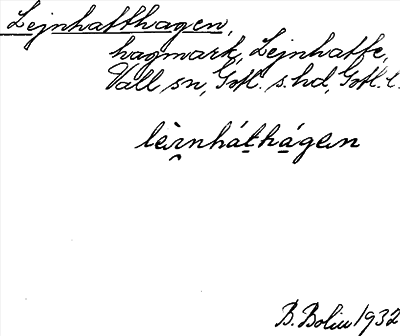 Lejnhatthagen,
hagmark, Lejnhatte,
Vall sn, Gotl. s. hd, Gotl. l.
lèi̯nhát͟há͟gen
B. Bolin 1932